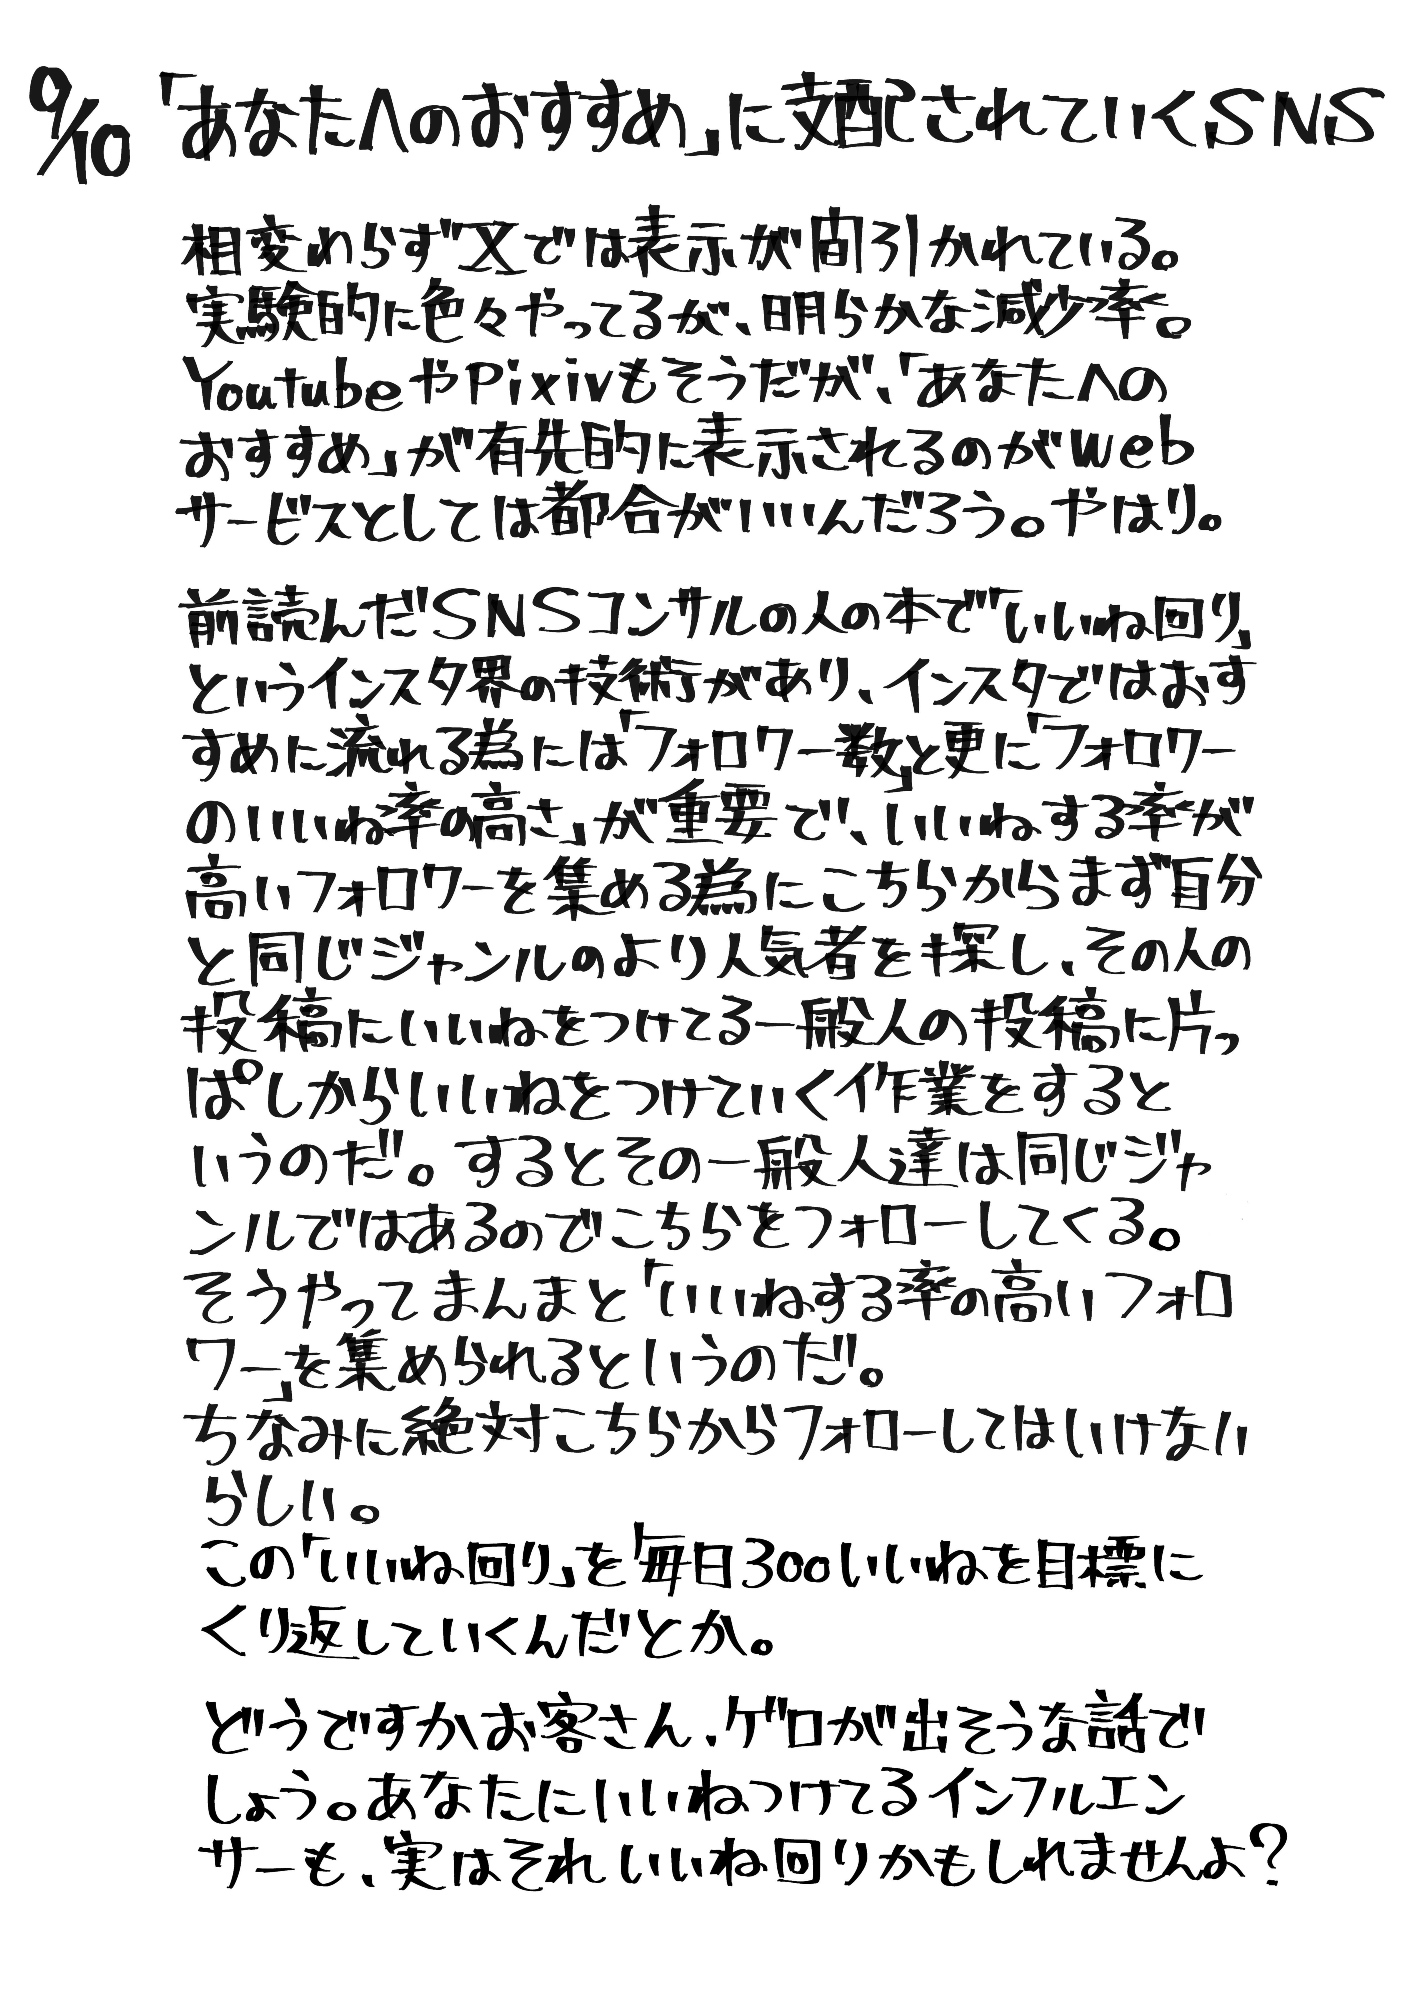 9/10 「あなたへのおすすめ」に支配されていくSNS
相変わらずXでは表示が間引かれている。
実験的に色々やってるが、明らかな減少率。
YoutubeやPixivもそうだが、「あなたへの
おすすめ」が有先的に表示されるのがweb
サービスとしては都合がいいんだろう。やはり。
前読んだSNSコンサルの人の本で「いいね回り」
というインスタ界の技術があり、インスタではおす
すめに流れる為には「フォロワー数」と更に「フォロワー
のいいね率の高さ」が重要で、いいねする率が
高いフォロワーを集める為にこちらからまず自分
と同じジャンルのより人気者を探し、その人の
投稿にいいねをつけてる一般人の投稿に片っ
ぱしからいいねをつけていく作業をすると
いうのだ。するとその一般人達は同じジャ
ンルではあるのでこちらをフォローしてくる。
そうやってまんまと「いいねする率の高いフォロ
ワー」を集められるというのだ。
ちなみに絶対こちらからフォローしてはいけない
らしい。
この「いいね回り」を「毎日300いいねを目標に
くり返していくんだとか。
どうですかお客さん、ゲロが出そうな話で
しょう。あなたにいいねつけてるインフルエン
サーも、実はそれいいね回りかもしれませんよ?